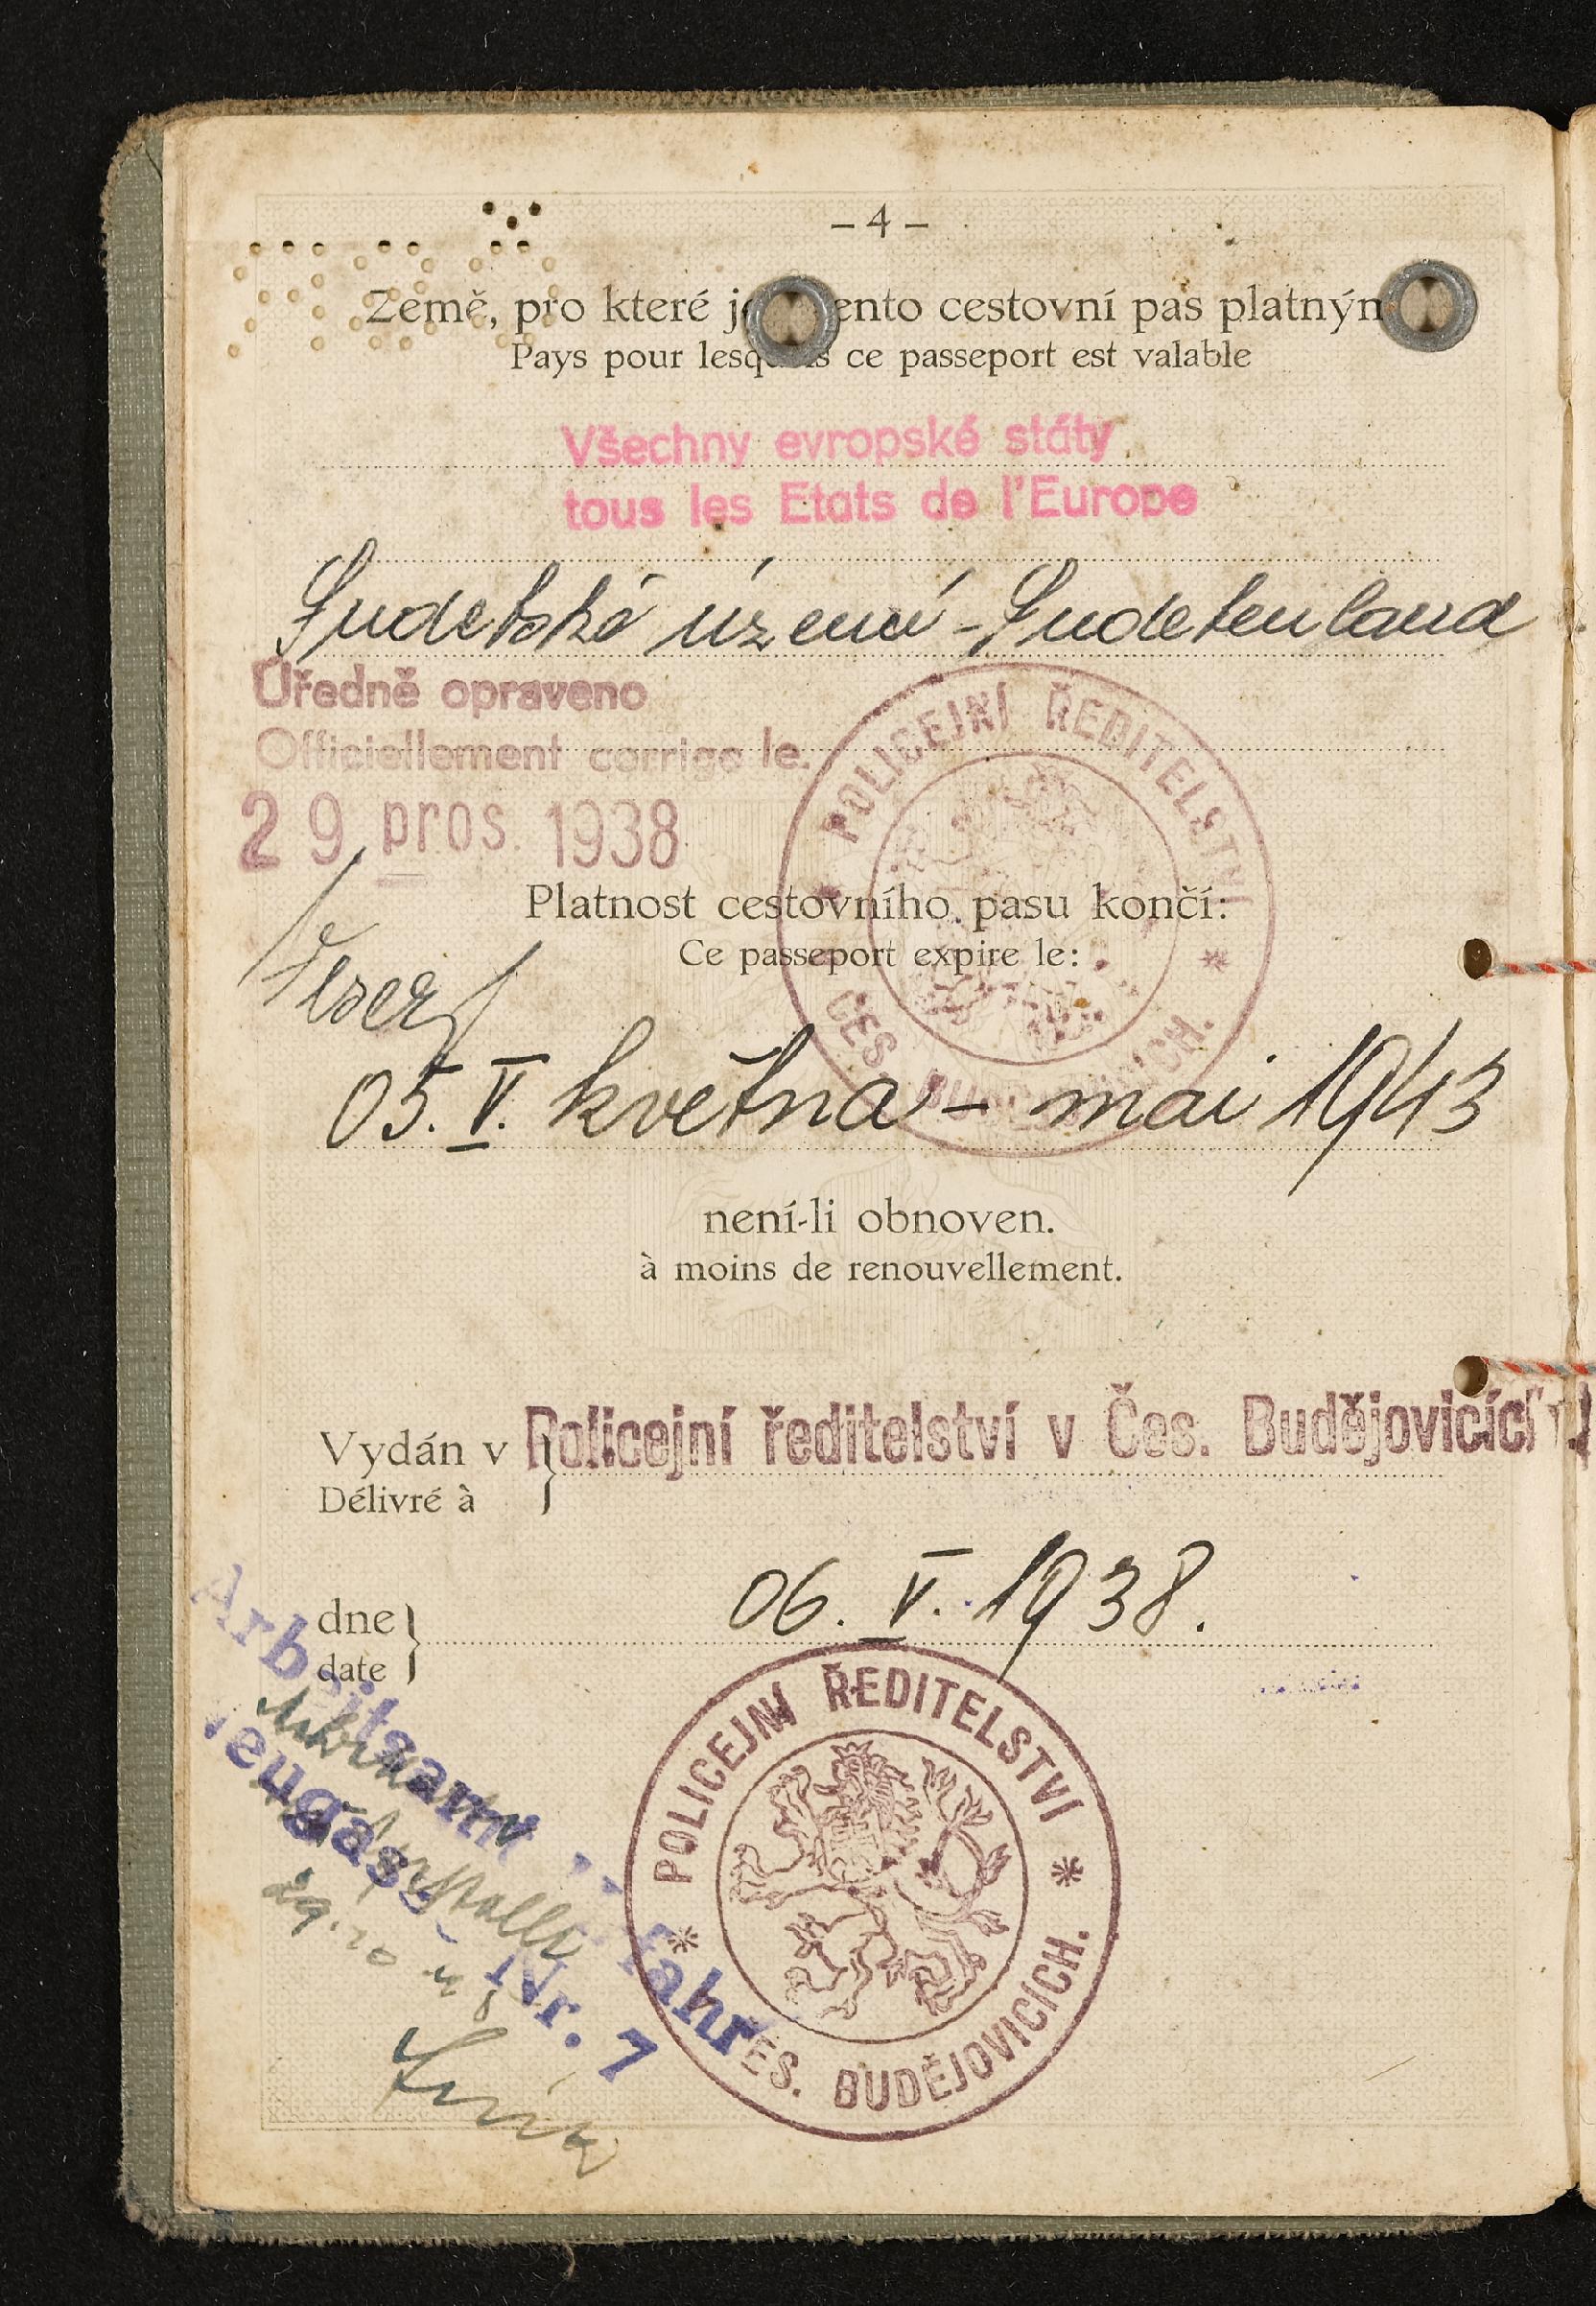 – 4 –
Země, pro které je tento cestovní pas platným
Pays pour lesquels ce passeport est valable
Všechny evropské státy
tous les Etats de l'Europe
Sudetské území - Sudetenland
Úředně opraveno
Officiellement corrige le.
29 pros. 1938
POLICEJNÍ ŘEDITELSTVÍ * ČES. BUDĚJOVICÍCH. *
Platnost cestovního pasu končí:
Ce passeport expire le:
05. V. května - mai 1943
není-li obnoven.
à moins de renouvellement.
Vydán v Policejní ředitelství v Čes. Budějovicích
Délivré à
dne 06. V. 1938.
date
POLICEJNÍ ŘEDITELSTVÍ * ČES. BUDĚJOVICÍCH. *
Arbeitsamt Lahr
Neugasse Nr. 7